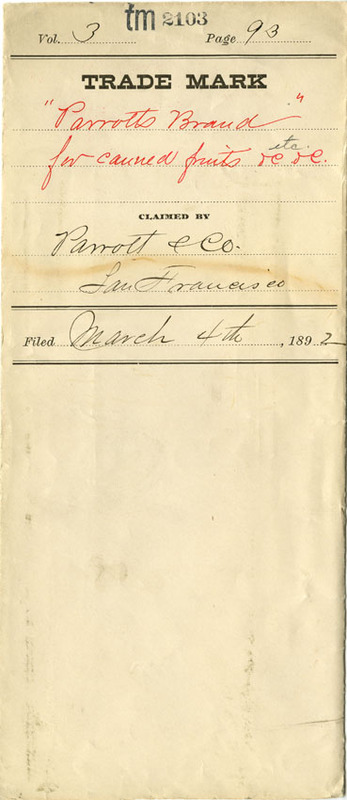 tm 2103
Vol. 3 Page 93
TRADE MARK
"Parrotts Brand"
for canned fruits etc. &c &c.
CLAIMED BY
Parrott & Co.
San Francisco
Filed March 4th, 1892